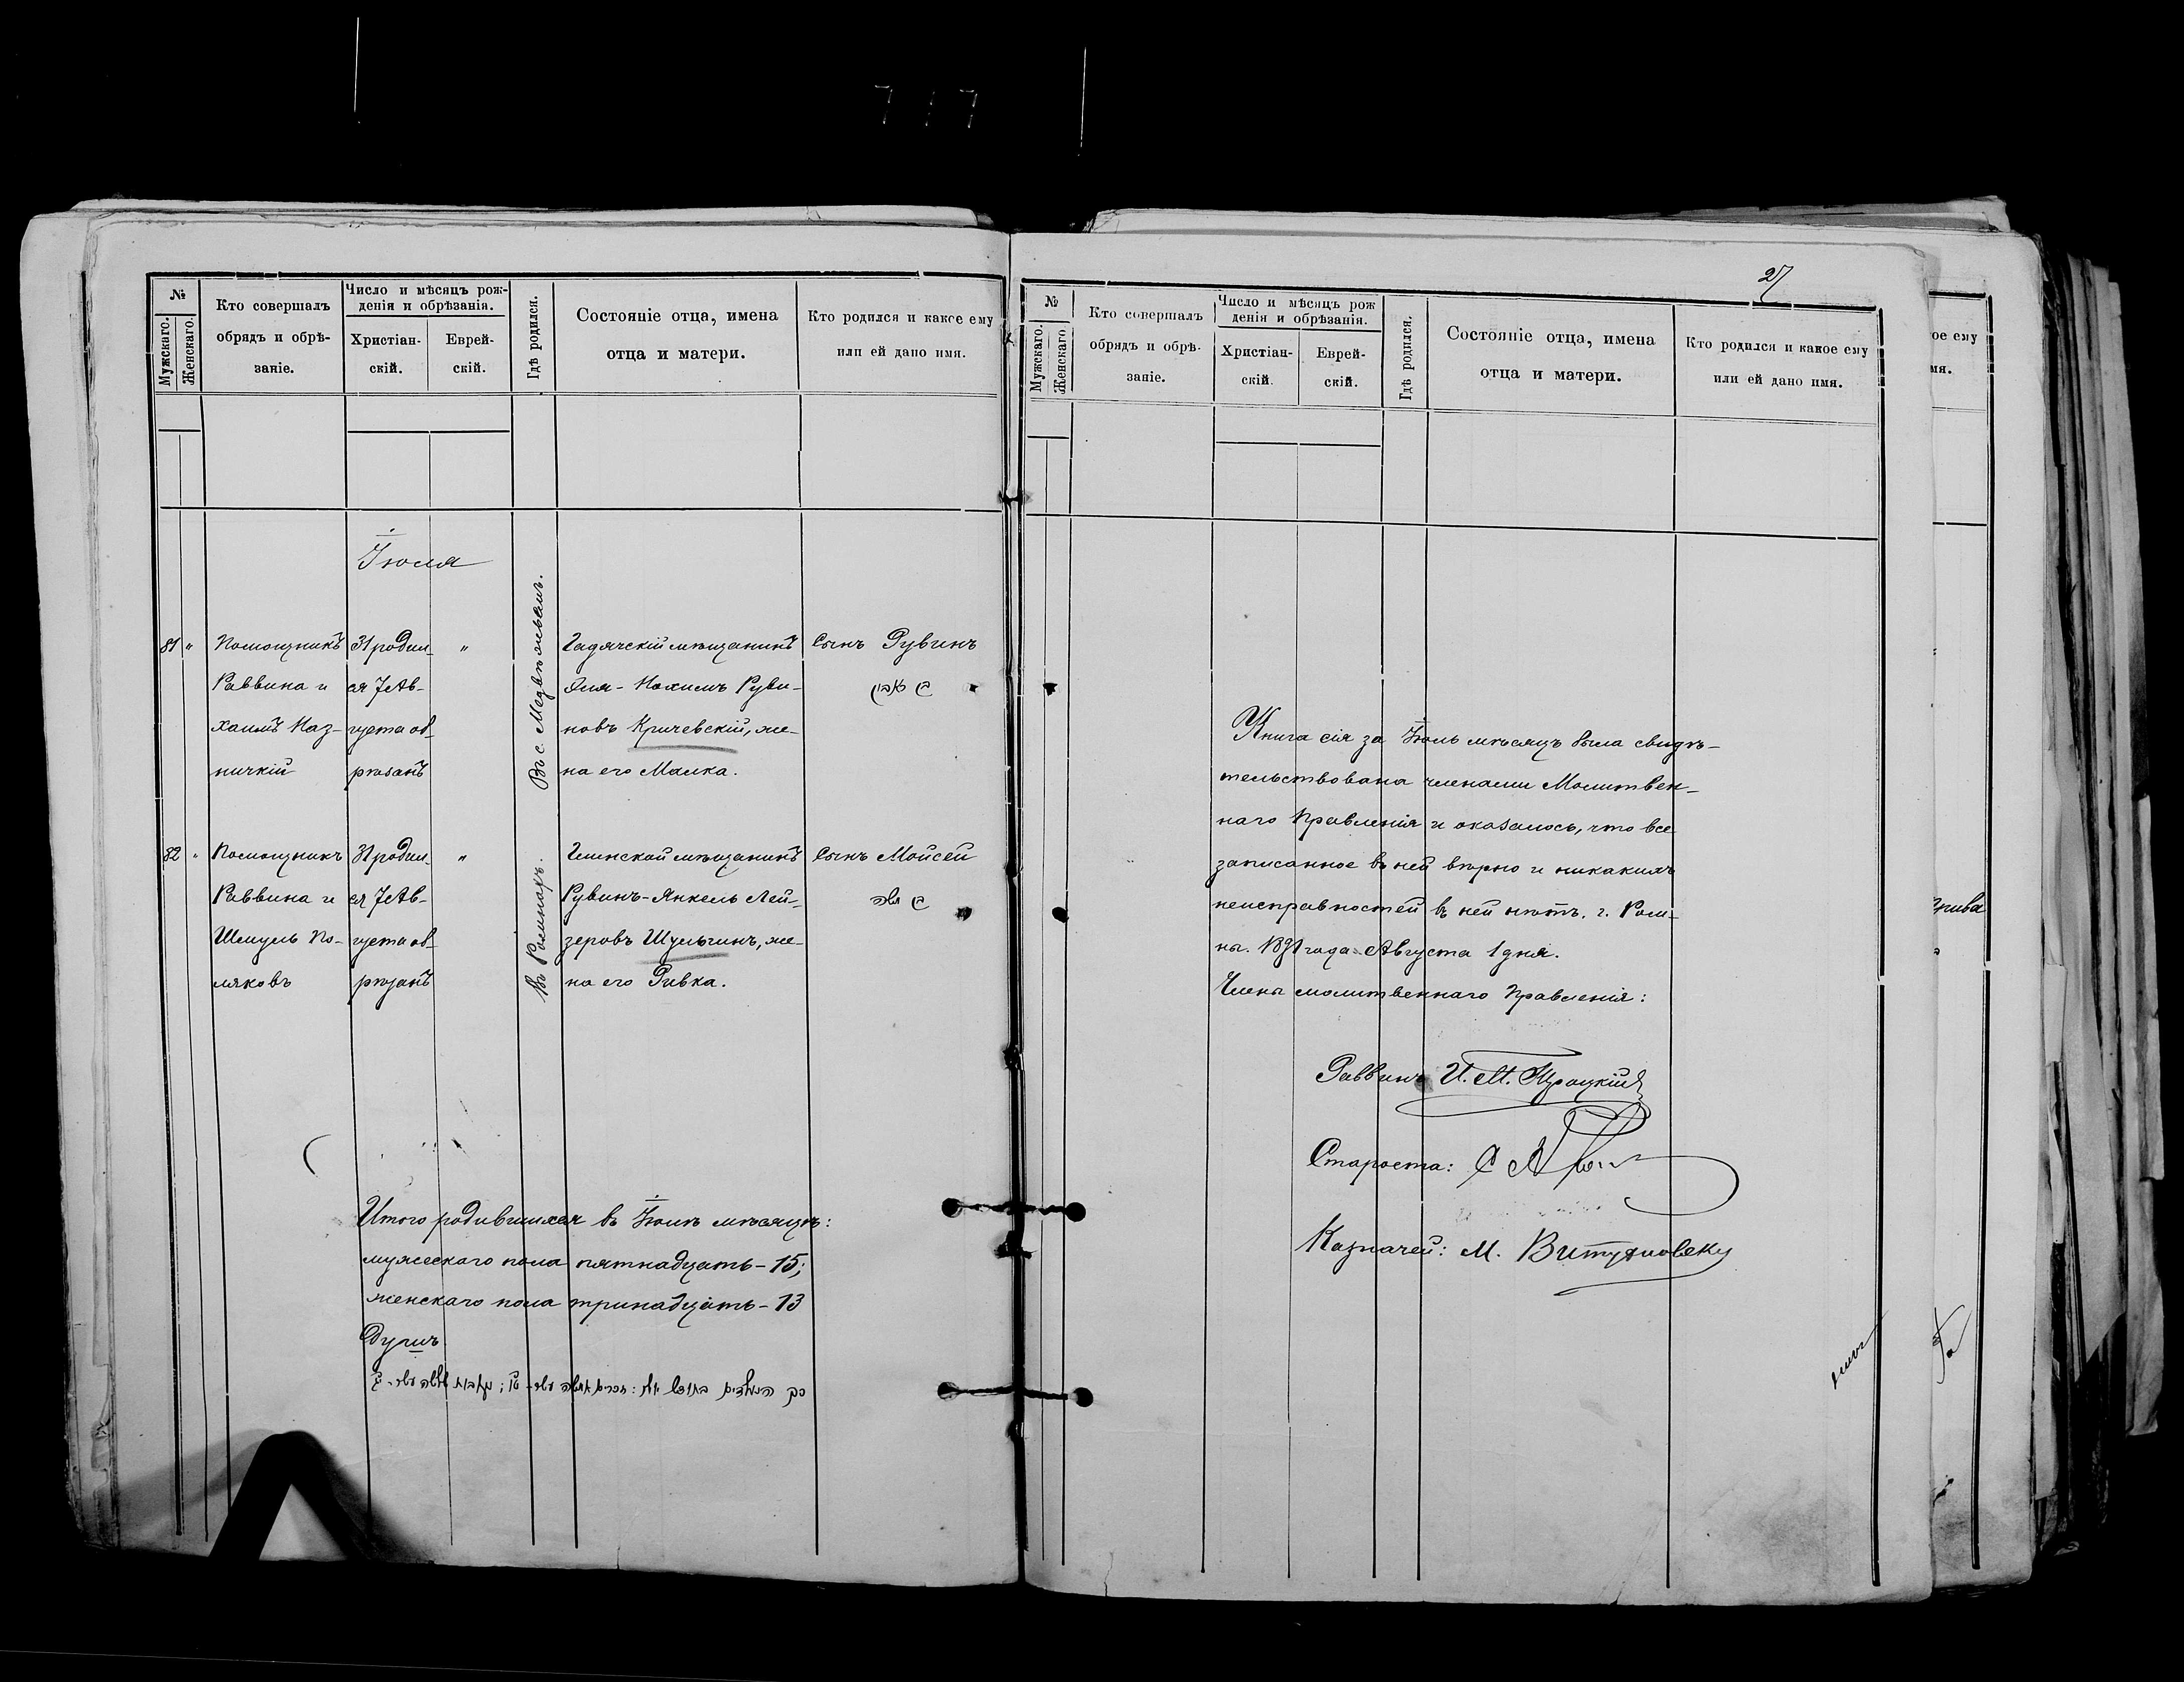 717
№
Мужскаго.
Женскаго.
Кто совершалъ
обрядъ и обрѣ-
заніе.
Число и мѣсяцъ рож-
денія и обрѣзанія.
Христіан-
скій.
Еврей-
скій.
Гдѣ родился.
Состояніе отца, имена
отца и матери.
Кто родился и какое ему
или ей дано имя.
Іюля
81 "
Помощникъ
Раввина и
Хаимъ Каз-
ничкій
31 родил-
ся 7 Ав-
густа об-
рѣзанъ
"
Въ с. Медвѣжьемъ.
Гадячскій мѣщанинъ
Эля-Нахимъ Руви-
новъ Кричевскій, же-
на его Малка.
Сынъ Рувинъ
בן ראובן
82 "
Помощникъ
Раввина и
Шмуль По-
ляковъ
31 родил-
ся 7 Ав-
густа об-
рѣзанъ
"
Въ Ромнахъ.
Глинской мѣщанинъ
Рувинъ-Янкель Лей-
зеровъ Шульгинъ, же-
на его Ривка.
Сынъ Мойсей
בן משה
Итого родившихся въ Іюлѣ мѣсяцѣ:
мужескаго пола пятнадцать - 15;
женскаго пола тринадцать - 13
душъ
27
№
Мужскаго.
Женскаго.
Кто совершалъ
обрядъ и обрѣ-
заніе.
Число и мѣсяцъ рож
денія и обрѣзанія.
Христіан-
скій.
Еврей-
скій.
Гдѣ родился.
Состояніе отца, имена
отца и матери.
Кто родился и какое ему
или ей дано имя.
Книга сія за Іюль мѣсяцъ была свидѣ-
тельствована членами Молитвен-
наго Правленія и оказалось, что все
записанное въ ней вѣрно и никакихъ
неисправностей въ ней нѣтъ. г. Ром-
ны. 1891 года Августа 1 дня.
Члены молитвеннаго Правленія:
Раввинъ И. М.
Староста:
Казначей: М.
ое ему
мя.